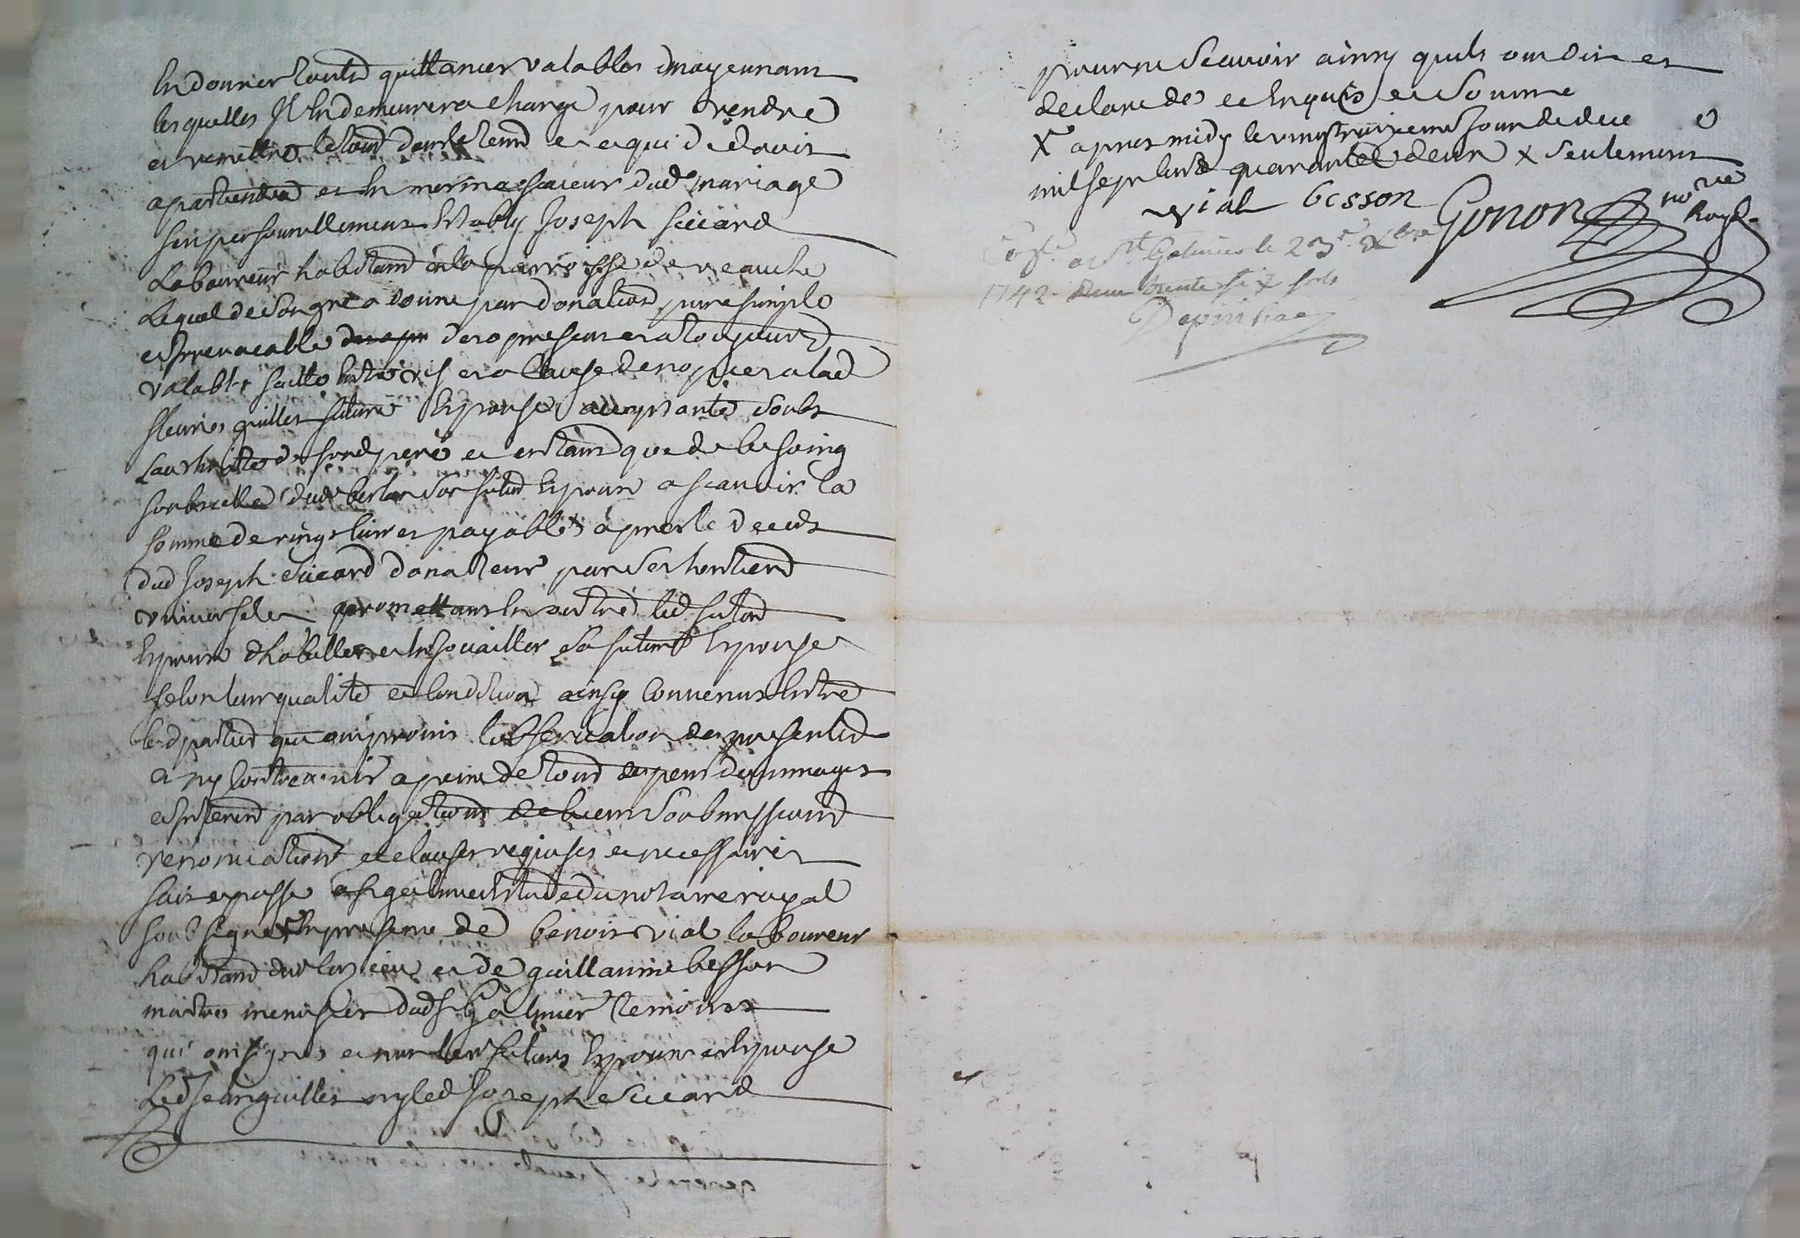 En donner toutes quittances valables moyennant
lesquelles Il En demeurera chargé pour rendre
et remettre le tout dans le temps et a qui de droit
apartiendra et En mesme faveur dud mariage
sest personnellement Estably Joseph Siccard
Laboureur habitant en la parroisse de veauche
Lequel de son gré a donné par donation pure simple
et Irrevocable des a present et a toujours
valable faitte Entre vifs et a Cause de nopces a lad
fleurie guillet future Espouse acceptante soubs
Lauthorité de sond pere et entant que de besoing
soubs celle dud futur Espoux a scavoir la
somme de vingt livres payables apres le deces
dud Joseph Siccard donateur par ses heritiers
universels promettant En outre led futur
Espoux dhabiller et Enjouailler sa future Espouse
selon leur qualité et Condition ainsy Convenus Entre
lesd parties qui ont promis lobservation des presentes
a ny Contrevenir a peine de tous depens dommages
et Interests par obligations de biens soubmissions
renonciations et clauses requises et necessaires
fait et passé a st galmier Estude du notaire royal
soubsigné En presence de benoist vial laboureur
habitant dud lieu et de guillaume besson
maitre menusier dud st Galmier temoins
qui ont signés et non les futurs Espoux et Espouse
Led Jean guillet ny led Joseph Siccard
pour ne scavoir ainsy quils ont dit et
declaré de ce Enquis et sommé
X apres midy le vingt troizieme Jour de dece
mil sept Cent quarante deux X seulement
vial besson Gonon no re
Royal
a st Galmier le 23e Xbre
1742 trente six sols
Depinhac